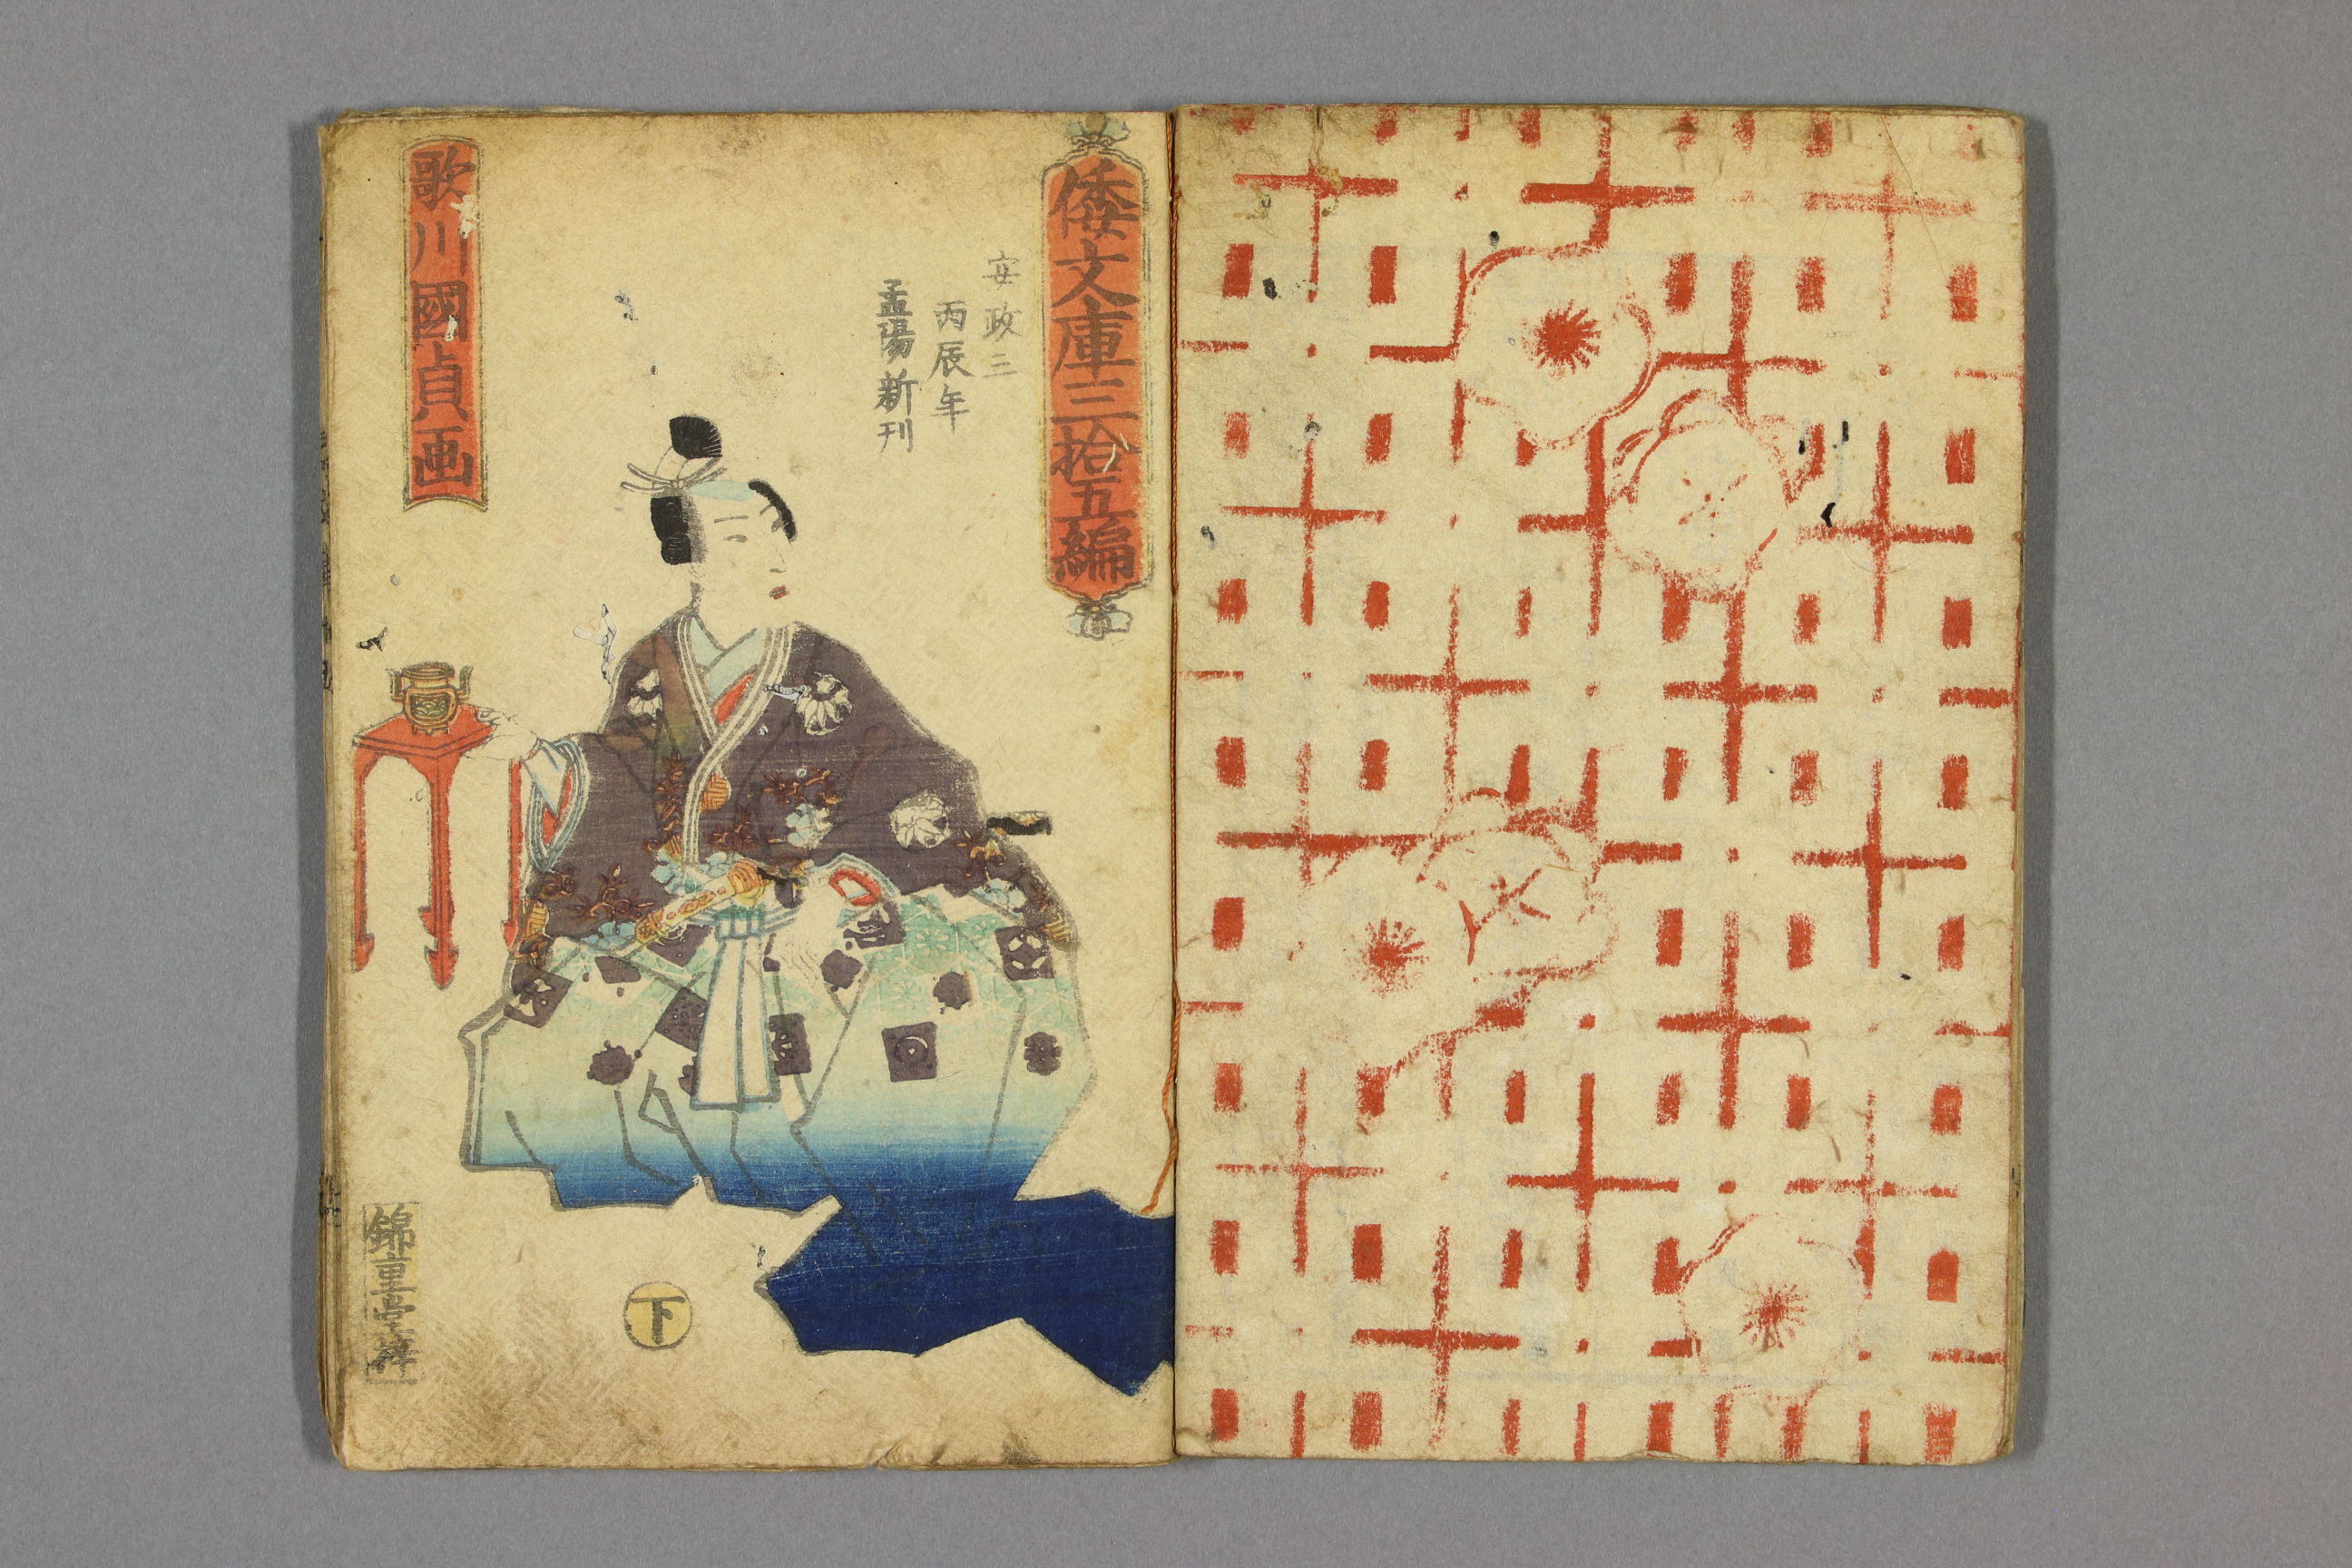 倭文庫三拾五編
安政三
丙辰年
孟陽新刊
歌川國貞画
下
錦重堂梓